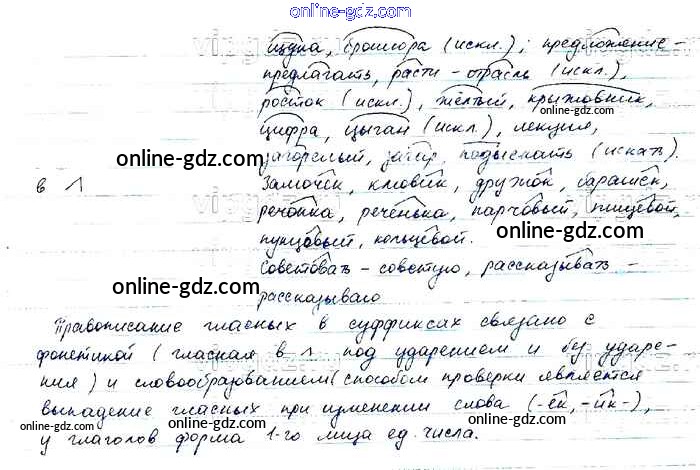 online-gdz.com
щука, брошюра (искл.); предложение-
предлагать, расти - отрасль (искл.),
росток (искл.), жёлтый, крыжовник,
цифра, цыган (искл.), лекция,
загорелый, загар, подыскать (искать).
в ^ Замочек, ключик, дружок, барашек,
online-gdz.com
речонка, реченька, парчовый, пищевой,
пунцовый, кольцевой.
online-gdz.com
Советовать - советую, рассказывать -
online-gdz.com
рассказываю
online-gdz.com
Правописание гласных в суффиксах связано с
фонетикой (гласная в ^ под ударением и без ударе-
ния) и словообразованием (способом проверки является
выпадение гласных при изменении слова (-ек, -ик-),
у глаголов форма 1-го лица ед. числа.
online-gdz.com